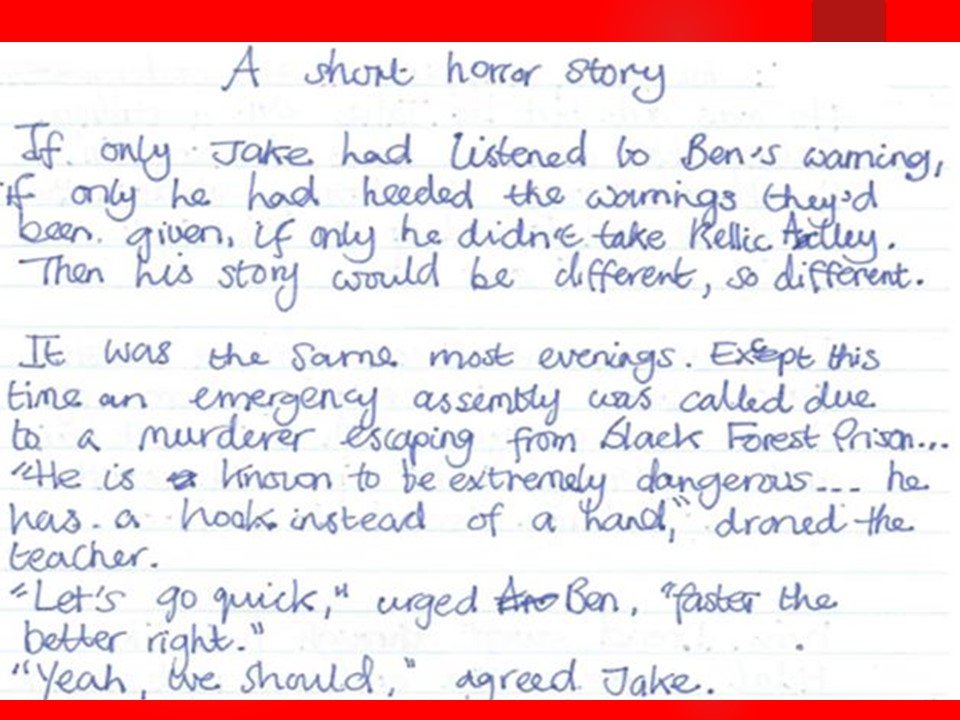 A short horror story
If only Jake had listened to Ben's warning,
if only he had heeded the warnings they'd
been given, if only he didn't take Kellic Astley.
Then his story would be different, so different.
It was the same most evenings. Except this
time an emergency assembly was called due
to a murderer escaping from black Forest Prison...
"He is known to be extremely dangerous... he
has a hook instead of a hand," droned the
teacher.
"Let's go quick," urged Ben, "faster the
better right."
"Yeah, we should," agreed Jake.